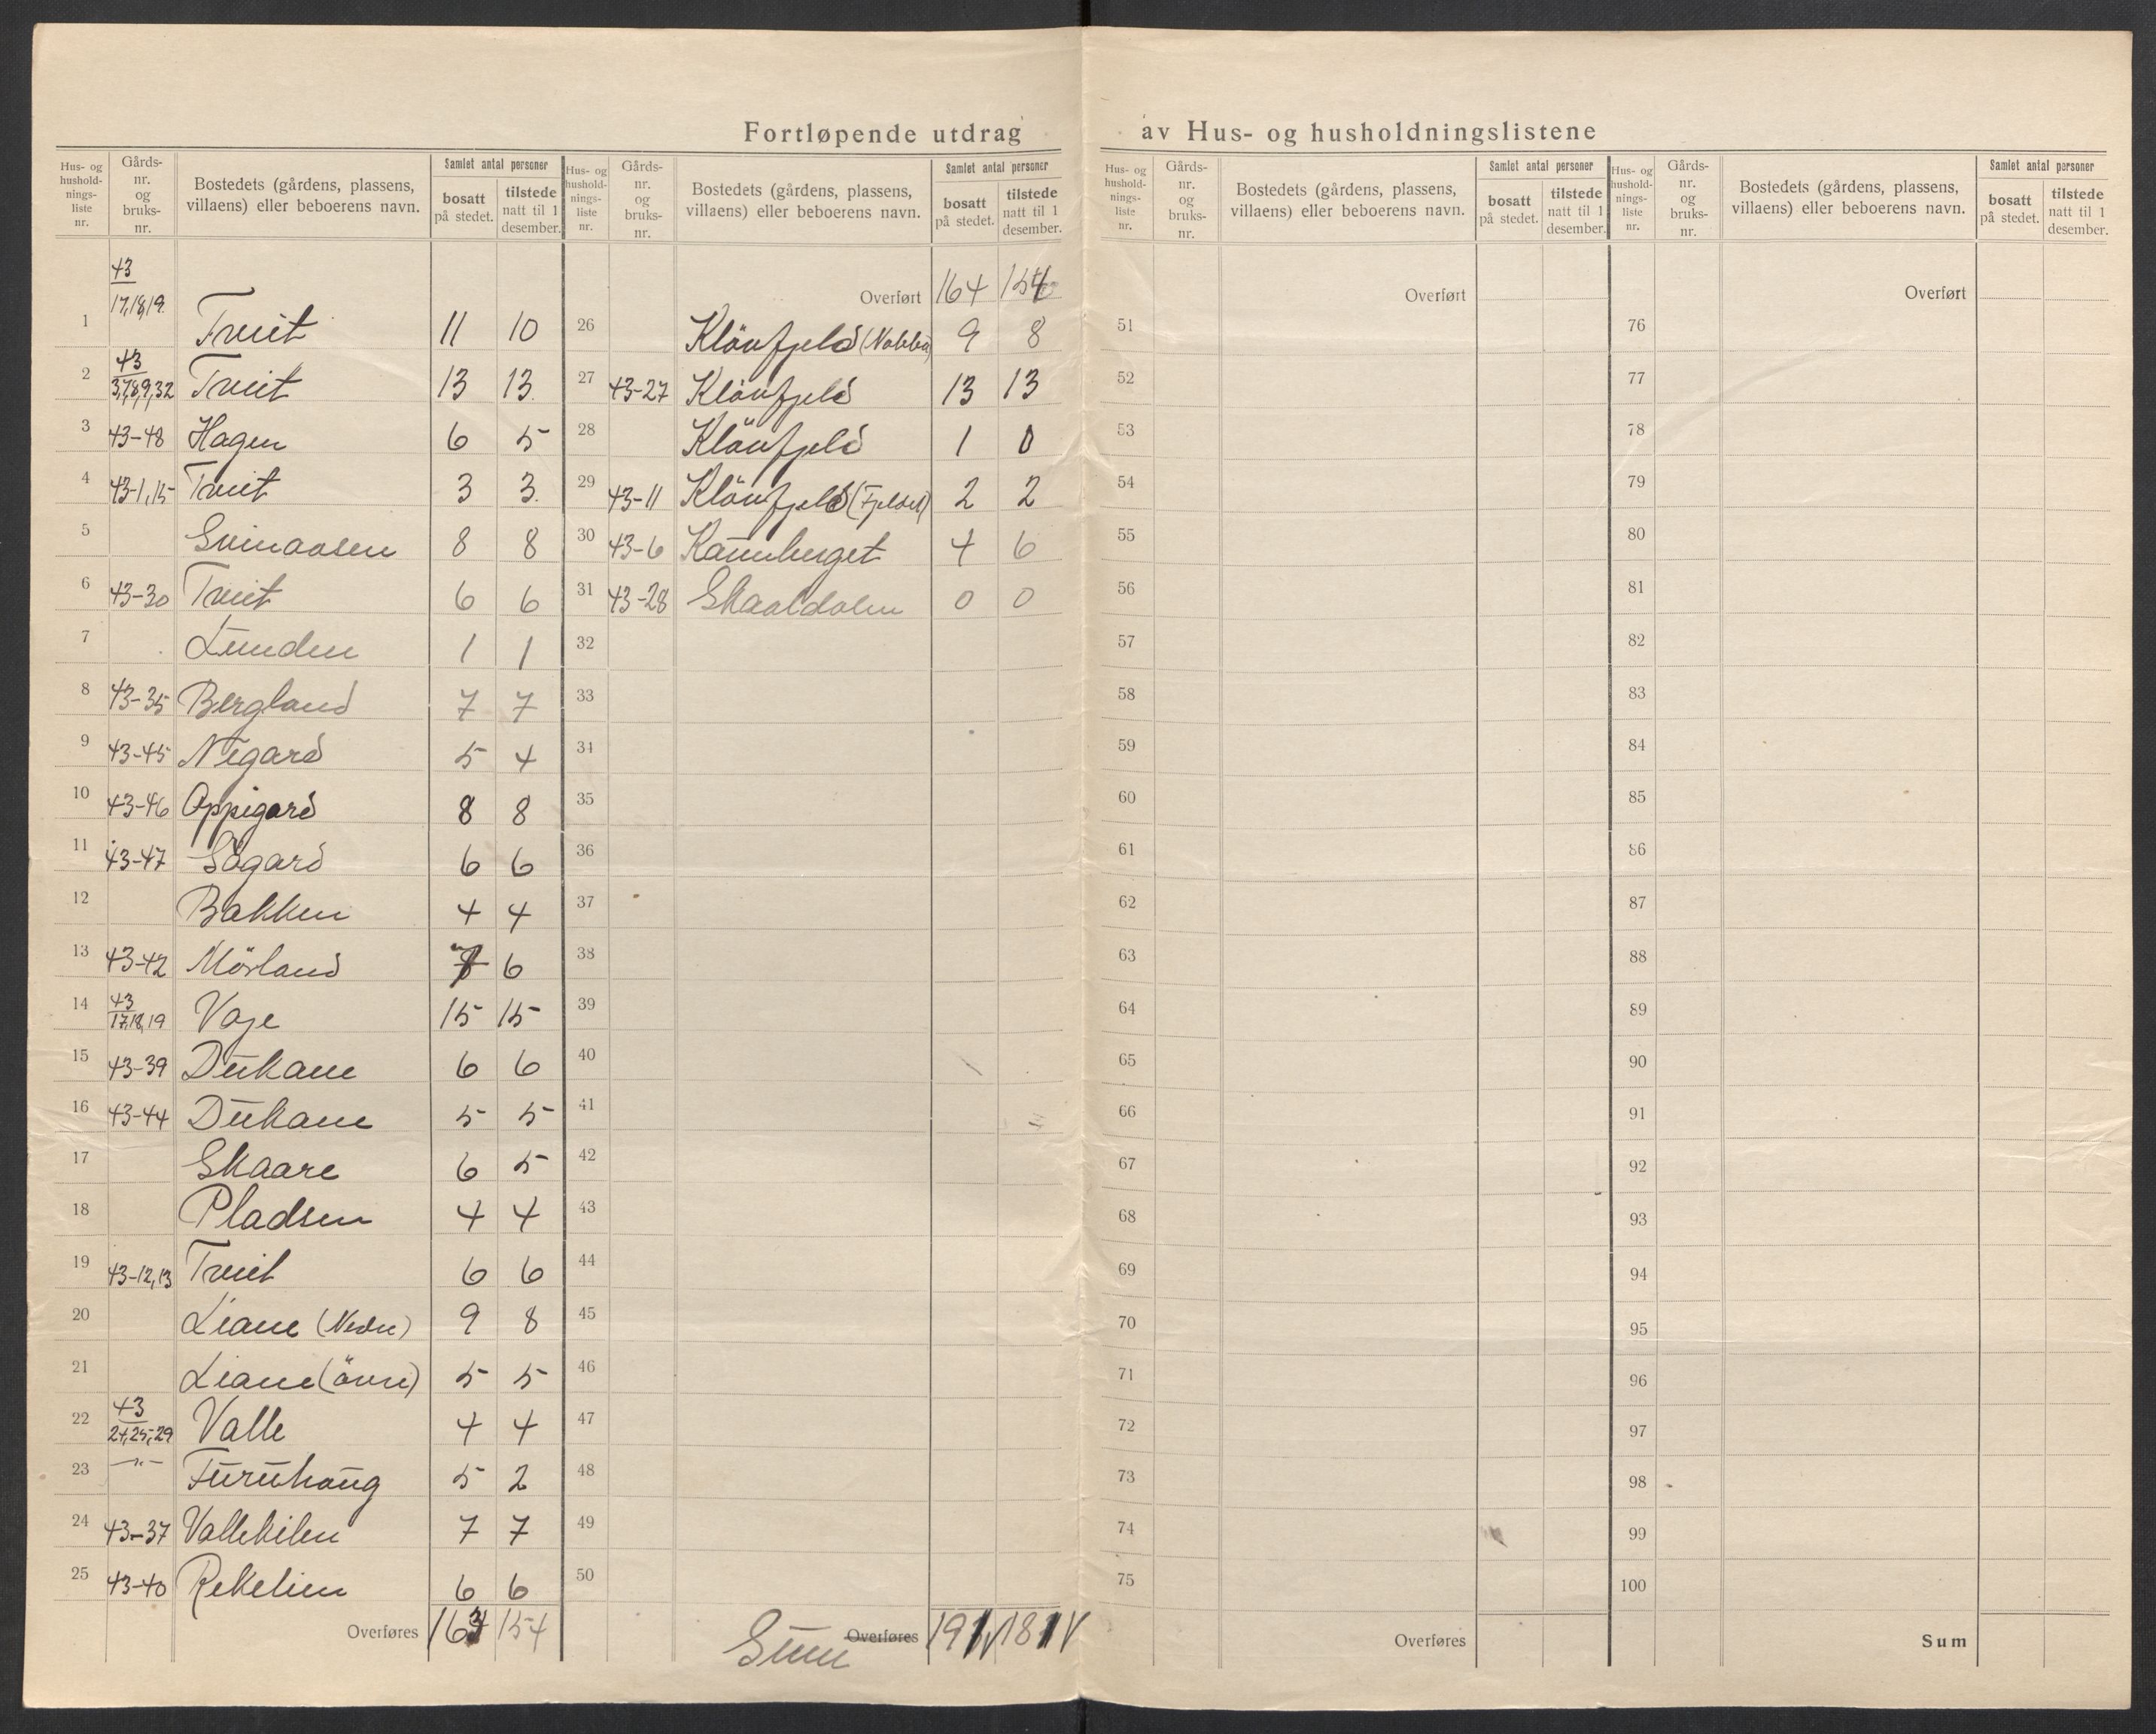 Fortløpende utdrag av Hus- og husholdningslistene
Hus- og husholdnings-liste nr. | Gårds-nr. og bruks-nr. | Bostedets (gårdens, plassens, villaens) eller beboerens navn. | Samlet antal personer | bosatt på stedet. | tilstede natt til 1 desember.
1 | 43 17,18,19 | Tveit | 11 | 10
2 | 43 3,7,8,9,32 | Tveit | 13 | 13
3 | 43-48 | Hagen | 6 | 5
4 | 43-1,15 | Tveit | 3 | 3
5 | Svinaasen | 8 | 8
6 | 43-30 | Tveit | 6 | 6
7 | Lunden | 1 | 1
8 | 43-35 | Bergland | 7 | 7
9 | 43-45 | Negard | 5 | 4
10 | 43-46 | Oppigard | 8 | 8
11 | 43-47 | Sögard | 6 | 6
12 | Bakken | 4 | 4
13 | 43-42 | Mörland | 6
14 | 43 17,18,19 | Vaje | 15 | 15
15 | 43-39 | Dukane | 6 | 6
16 | 43-44 | Dukane | 5 | 5
17 | Skaare | 6 | 5
18 | Pladsen | 4 | 4
19 | 43-12,13 | Tveit | 6 | 6
20 | Liane (Nedre) | 9 | 8
21 | Liane (övre) | 5 | 5
22 | 43 24,25,29 | Valle | 4 | 4
23 | -"- | Furuhaug | 5 | 2
24 | 43-37 | Vallekilen | 7 | 7
25 | 43-40 | Rekelien | 6 | 6
Overføres | 164 | 154
Hus- og husholdnings-liste nr. | Gårds-nr. og bruks-nr. | Bostedets (gårdens, plassens, villaens) eller beboerens navn. | Samlet antal personer | bosatt på stedet. | tilstede natt til 1 desember.
Overført | 164 | 154
26 | Klövfjeld | 9 | 8
27 | 43-27 | Klövfjeld | 13 | 13
28 | Klövfjeld | 1 | 0
29 | 43-11 | Klövfjeld (Fjeldet) | 2 | 2
30 | 43-6 | Kamberget | 4 | 6
31 | 43-28 | Skaaldalen | 0 | 0
32
33
34
35
36
37
38
39
40
41
42
43
44
45
46
47
48
49
50
Overføres Sum
Hus- og husholdnings-liste nr. | Gårds-nr. og bruks-nr. | Bostedets (gårdens, plassens, villaens) eller beboerens navn. | Samlet antal personer | bosatt på stedet. | tilstede natt til 1 desember.
Overført
51
52
53
54
55
56
57
58
59
60
61
62
63
64
65
66
67
68
69
70
71
72
73
74
75
Overføres
Hus- og husholdnings-liste nr. | Gårds-nr. og bruks-nr. | Bostedets (gårdens, plassens, villaens) eller beboerens navn. | Samlet antal personer | bosatt på stedet. | tilstede natt til 1 desember.
Overført
76
77
78
79
80
81
82
83
84
85
86
87
88
89
90
91
92
93
94
95
96
97
98
99
100
Sum